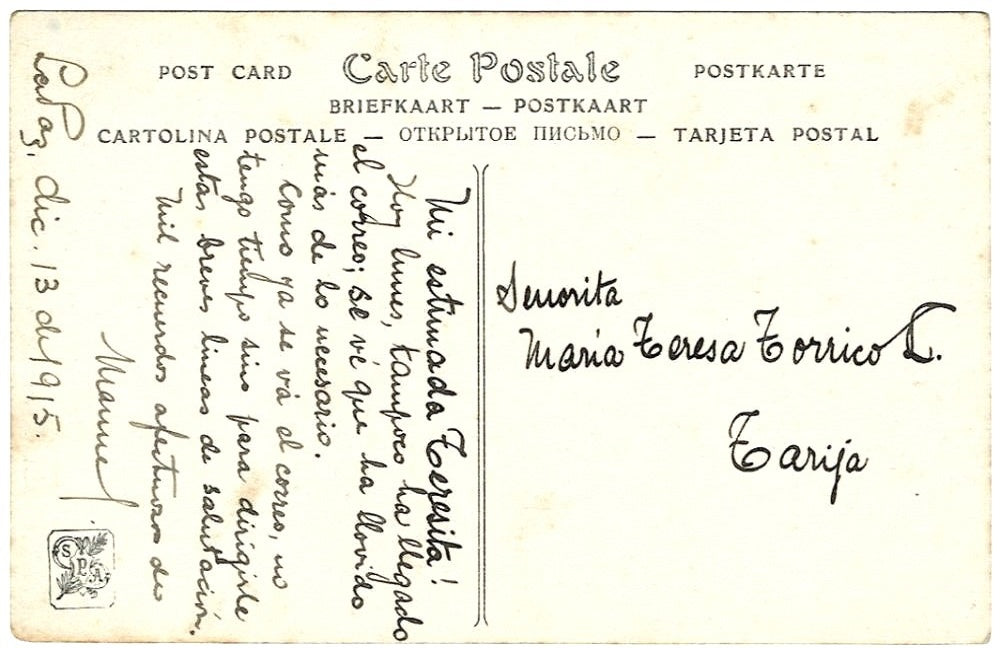 POST CARD Carte Postale POSTKARTE
BRIEFKAART — POSTKAART
CARTOLINA POSTALE — ОТКРЫТОЕ ПИСЬМО — TARJETA POSTAL
Mi estimada Teresita!
Hoy lunes, tampoco ha llegado
el correo; se vé que ha llovido
más de lo necesario.
Como ya se vá el correo, no
tengo tiempo sino para dirigirte
estas breves lineas de salutación.
Mil recuerdos afectuosos de
Manuel
LaPaz, dic. 13 de 1915.
Senorita
María Teresa Torrico L.
Tarija
SPA